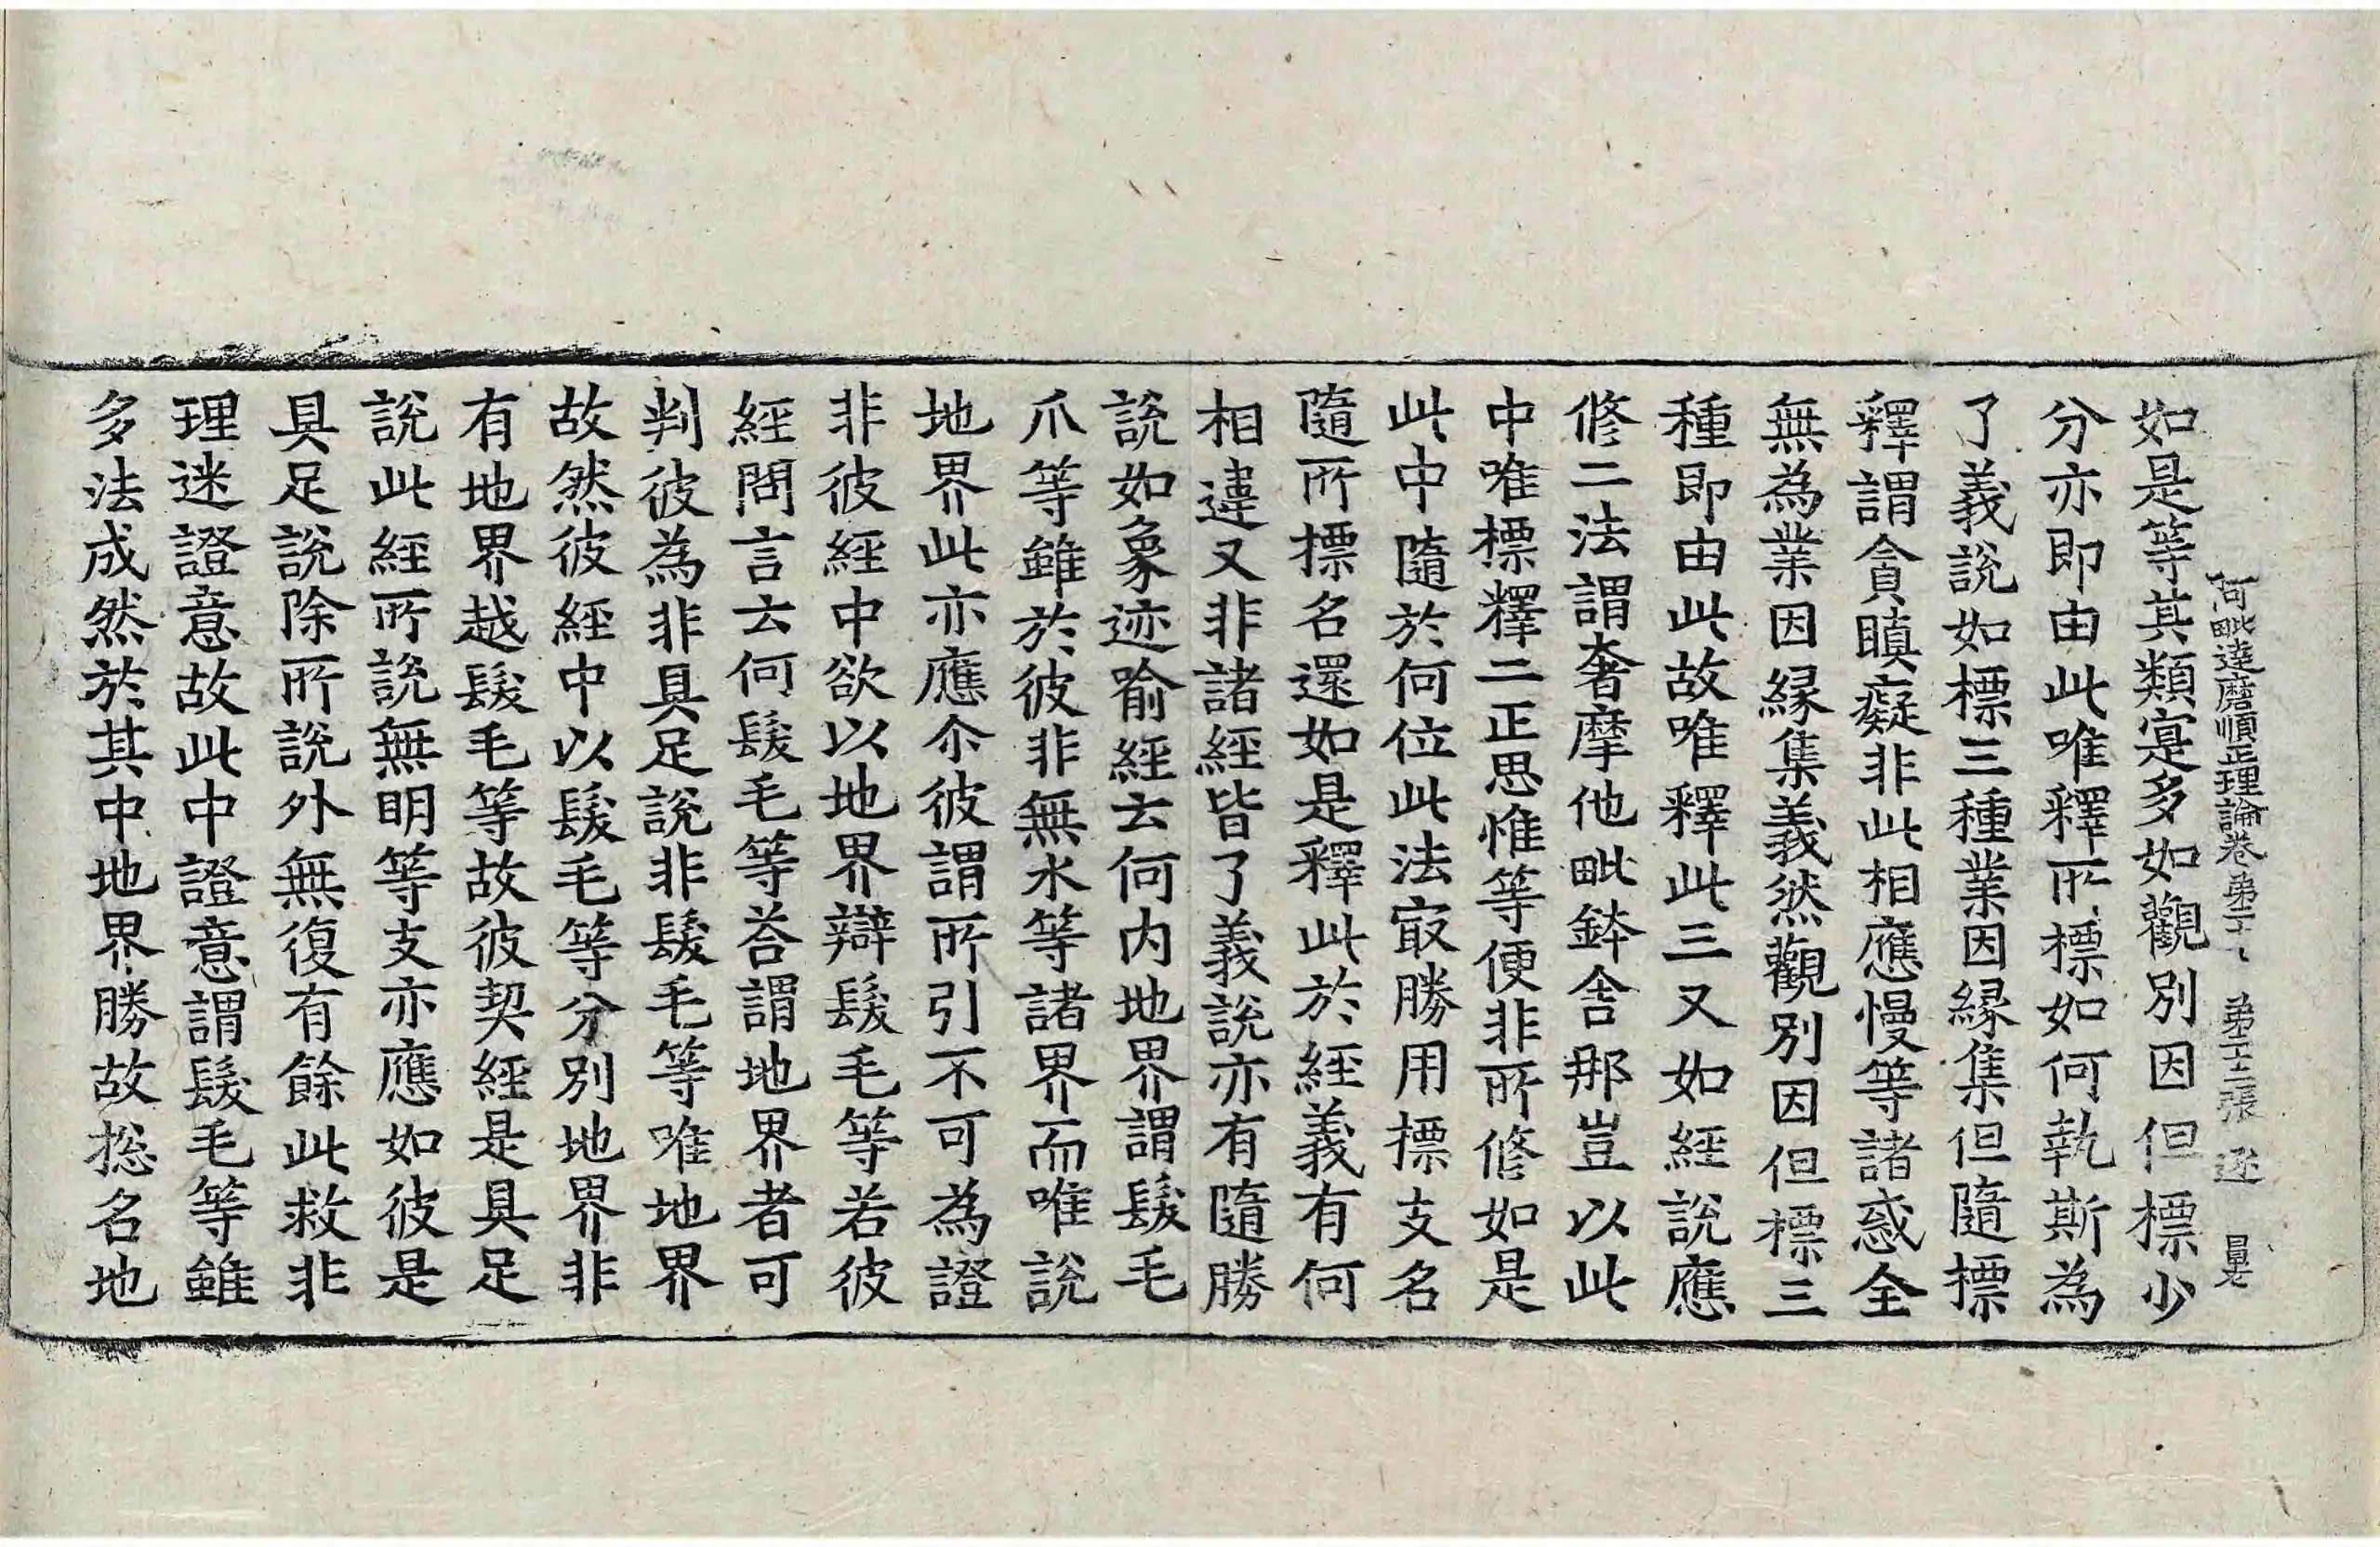 阿毗達磨順正理論卷第二十 第十三張 逐
如是等其類寔多如觀別因但標少
分亦即由此唯釋所標如何執斯為
了義說如標三種業因緣集但隨標
釋謂貪瞋癡非此相應慢等諸惑全
無為業因緣集義然觀別因但標三
種即由此故唯釋此三又如經說應
修二法謂奢摩他毗鉢舍那豈以此
中唯標釋二正思惟等便非所修如是
此中隨於何位此法㝡勝用標支名
隨所標名還如是釋此於經義有何
相違又非諸經皆了義說亦有隨勝
說如象迹喻經云何內地界謂髮毛
爪等雖於彼非無水等諸界而唯說
地界此亦應尒彼謂所引不可為證
非彼經中欲以地界辯髮毛等若彼
經問言云何髮毛等荅謂地界者可
判彼為非具足說非髮毛等唯地界
故然彼經中以髮毛等分別地界非
有地界越髮毛等故彼契經是具足
說此經所說無明等支亦應如彼是
具足說除所說外無復有餘此救非
理迷證意故此中證意謂髮毛等雖
多法成然於其中地界勝故捴名地